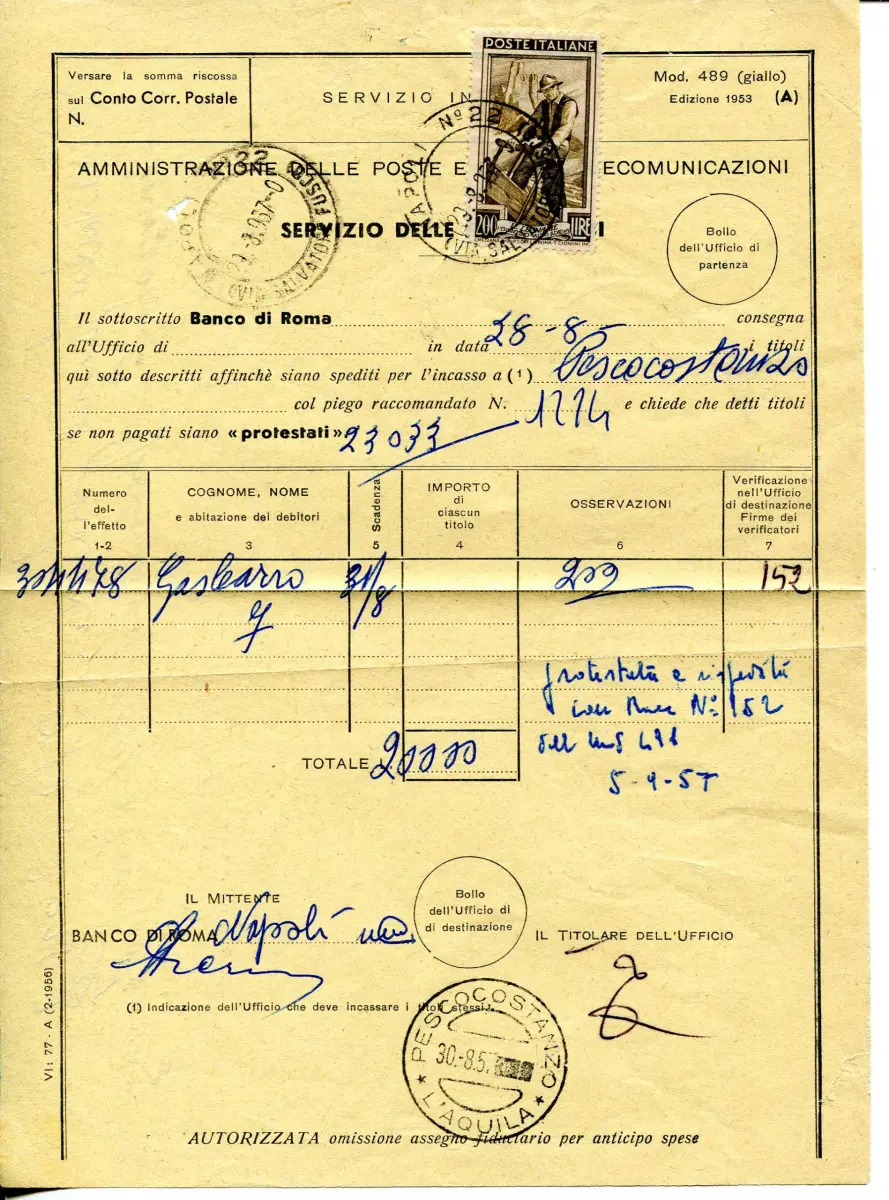 Versare la somma riscossa
sul Conto Corr. Postale
N.
SERVIZIO IN
POSTE ITALIANE
200 LIRE
Mod. 489 (giallo)
Edizione 1953 (A)
AMMINISTRAZIONE DELLE POSTE E ECOMUNICAZIONI
SERVIZIO DELLE I
NAPOLI Nº 22
Bollo
dell'Ufficio di
partenza
Il sottoscritto Banco di Roma consegna
all'Ufficio di in data 28-8- i titoli
quì sotto descritti affinchè siano spediti per l'incasso a (1) Pescocostanzo
col piego raccomandato N. e chiede che detti titoli
se non pagati siano «protestati» 23033
Numero
del-
l'effetto
1-2
COGNOME, NOME
e abitazione dei debitori
3
Scadenza
5
IMPORTO
di
ciascun
titolo
4
OSSERVAZIONI
6
Verificazione
nell'Ufficio
di destinazione
Firme dei
verificatori
7
Gasbarro 31/8 209 152
protestata e rispedita
con Racc Nº 152
5-9-57
TOTALE L. 20000
IL MITTENTE
BANCO DI ROMA Napoli
Bollo
dell'Ufficio di
di destinazione
IL TITOLARE DELL'UFFICIO
(1) Indicazione dell'Ufficio che deve incassare i titoli stessi.
VI: 77 - A (2-1956)
PESCOCOSTANZO
30.-8.5
★ L'AQUILA ★
AUTORIZZATA omissione assegno fiduciario per anticipo spese